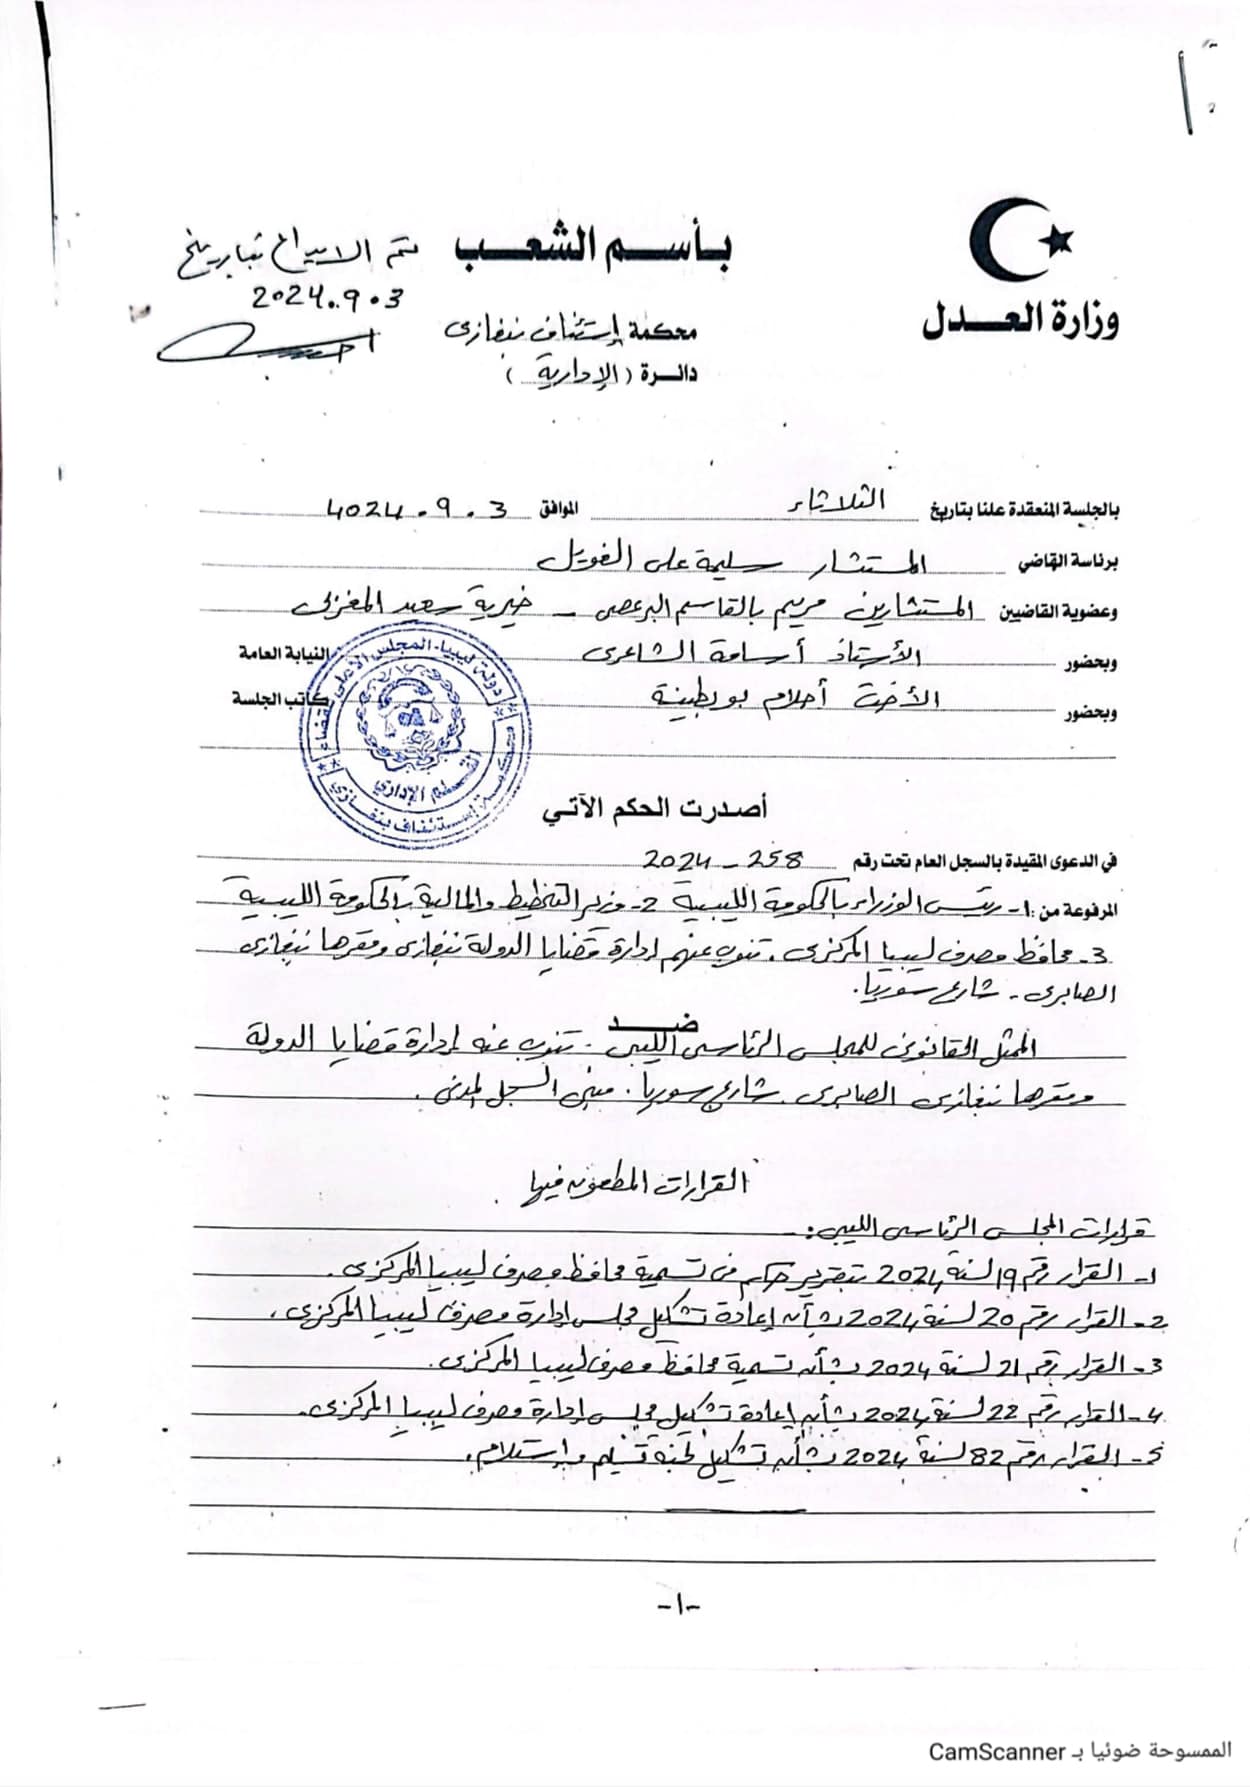 بأسم الشعب
وزارة العدل
تم الايداع بتاريخ
2024.9.3
محكمة إستئناف بنغازى
دائرة (الإدارية)
بالجلسة المنعقدة علنا بتاريخ الثلاثاء الموافق 3.9.4024
برئاسة القاضي المستشار سليمة على الغويل
وعضوية القاضيين المستشارين مريم بالقاسم البرعصى - خيرية سعيد المغربى
وبحضور الأستاذ أسامة الشاعرى النيابة العامة
وبحضور الأخت أحلام بوبطينة كاتب الجلسة
دولة ليبيا - المجلس الأعلى للقضاء
القسم الإداري
محكمة إستئناف بنغازي
أصدرت الحكم الآتي
في الدعوى المقيدة بالسجل العام تحت رقم 258 - 2024
المرفوعة من : 1- رئيس الوزراء بالحكومة الليبية 2- وزير التخطيط والمالية بالحكومة الليبية
3- محافظ مصرف ليبيا المركزى . تنوب عنهم إدارة قضايا الدولة بنغازى ومقرها بنغازى
الصابرى - شارع سوريا .
ضد
الممثل القانونى للمجلس الرئاسى الليبى . تنوب عنه إدارة قضايا الدولة
ومقرها بنغازى الصابرى . شارع سوريا . مبنى السجل المدنى .
القرارات المطعون فيها
قرارات المجلس الرئاسى الليبى :
1- القرار رقم 19 لسنة 2024 بتقرير حكم فى تسمية محافظ مصرف ليبيا المركزى .
2- القرار رقم 20 لسنة 2024 بشأن إعادة تشكيل مجلس إدارة مصرف ليبيا المركزى .
3- القرار رقم 21 لسنة 2024 بشأن تسمية محافظ مصرف ليبيا المركزى .
4- القرار رقم 22 لسنة 2024 بشأن إعادة تشكيل مجلس إدارة مصرف ليبيا المركزى .
5- القرار رقم 82 لسنة 2024 بشأن تشكيل لجنة تسليم وإستلام .
-1-
الممسوحة ضوئيا بـ CamScanner